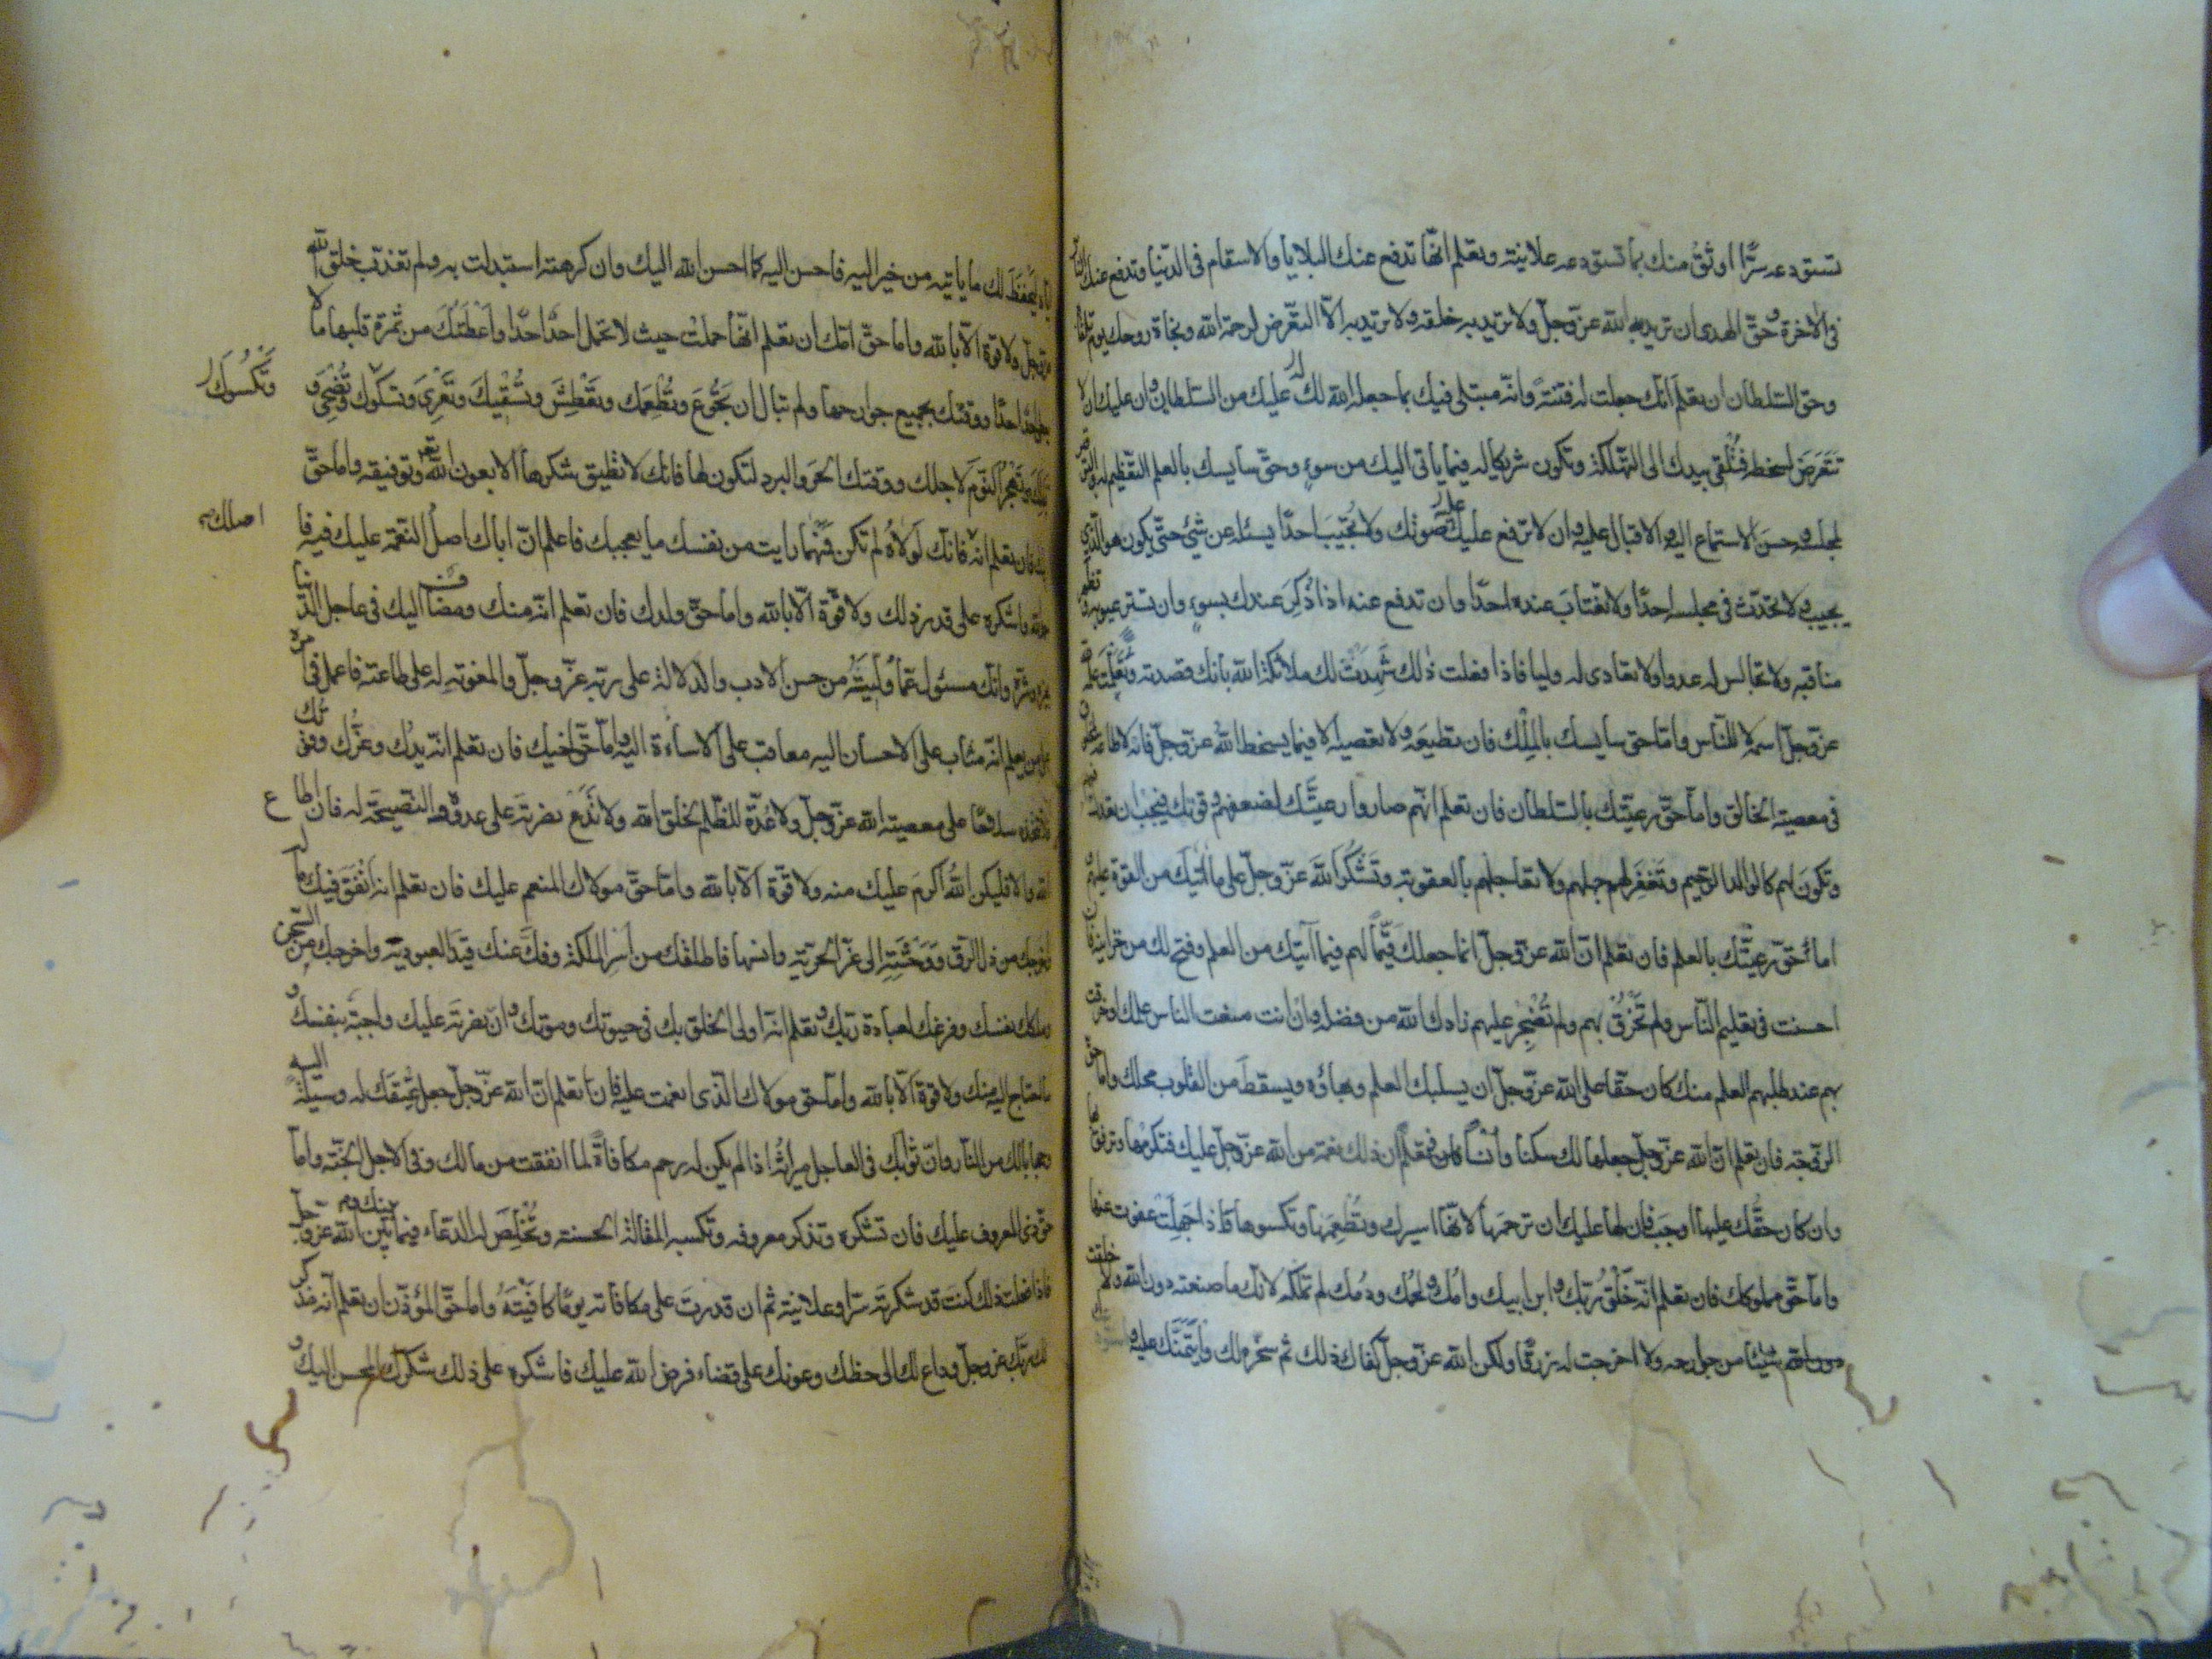 تستودعه سرًّا اوثق منك بما تستودعه علانية وتعلم انّها تدفع عنك البلايا والاسقام فى الدّنيا وتدفع عنك النار
فى الاخرة وحقّ الهدى ان تريد به الله عزّ وجلّ ولا تريد به خلقه ولا تريد به الّا التعّرض لرحمة الله ونجاة روحك يوم تلقاه
وحق السّلطان ان تعلم انّك جعلت له فتنة وانّه مبتلى فيك بما جعله الله له عليك من السّلطان وان عليك ان لا
تتعرّض لسخطه فتلقى بيدك الى التهلكة وتكون شريكا له فيما ياتى اليك من سوء وحقّ سايسك بالعلم التعّظيم له والتوقير
لمجلسه وحسن الاستماع اليه والاقبال عليه وان لا ترفع عليه صوتك ولا تجيب احدًا يسئله عن شئ حتّى يكون هو الّذى
يجيب ولا تحدّث فى مجلسه احدًا ولا تغتاب عنده احدًا وان تدفع عنه اذا ذكر عندك بسوء وان تستر عيوبه وتظهر
مناقبه ولا تجالس له عدوا ولا تعادى له وليا فاذا فعلت ذلك شهدت لك ملائكة الله بانك قصدته وتعلّمت علمه لله
عزّ وجلّ اسمه لا للنّاس وامّا حق سايسك بالملك فان تطيعه ولا تعصيه الا فيما يسخط الله عزّ وجلّ فانه لا طاعة لمخلوق
فى معصية الخالق وامّا حقّ رعيّتك بالسّلطان فان تعلم انّهم صاروا رعيّتك لضعفهم وقوتك فيجب ان تعدل فيهم
وتكون لهم كالوالد الرّحيم وتغفر لهم جهلهم ولا تعاجلهم بالعقوبة وتشكر الله عزّ وجلّ على ما اتيك من القوّة عليهم و
امّا حقّ رعيّتك بالعلم فان تعلم انّ الله عزّ وجلّ انّما جعلك قيّمًا لهم فيما آتيك من العلم وفتح لك من خزاينه فان
احسنت فى تعليم النّاس ولم تخرق بهم ولم تضجر عليهم زادك الله من فضله وان انت منعت الناس علمك او خرقت
بهم عند طلبهم العلم منك كان حقّا على الله عزّ وجلّ ان يسلبك العلم وبهاؤه ويسقط من القلوب محلك وامّا حقّ
الزوّجة فان تعلم انّ الله عزّ وجلّ جعلها لك سكنا وأنسًا فتعلم ان ذلك نعمة من الله عزّ وجلّ عليك فتكرمها وترفق بها
وان كان حقّك عليها اوجب فان لها عليك ان ترحمها لانّها اسيرك وتطعمها وتكسوها فاذا جهلت عفوت عنها
وامّا حقّ مملوكك فان تعلم انّه خلق ربّك وابن ابيك وامّك ولحمك ودمك لم تملكه لانّك ما صنعته دون الله ولا خلقت
شيئا من جوارحه ولا اخرجت له رزقًا ولكن الله عزّ وجلّ كفاك ذلك ثم سخّره لك وائتمنك عليه و
ليحفظ لك ما ياتيه من خير اليه فاحسن اليه كما احسن الله اليك وان كرهته استبدلت به ولم تعذّب خلق الله
عزّ وجلّ ولا قوة الّا بالله واما حقّ امّك ان تعلم انّها حملت حيث لا تحمل احدًا احدًا واعطتك من ثمرة قلبها ما لا
احدًا ووقتك بجميع جوارحها ولم تبال ان تجوع وتطعمك وتعطش وتسقيك وتعرى وتكسوك وتضحى و
وتكسوك
وتهجر النّوم لاجلك ووقتك الحرّ والبرد لتكون لها فانك لا تطيق شكرها الّا بعون الله تعالى وتوفيقه واما حقّ
فان تعلم انّه فانّك لولاه لم تكن فمهما رايت من نفسك ما يعجبك فاعلم انّ اباك اصل النّعمة عليك فيه فا
اصلك
واشكره على قدر ذلك ولا قوّة الّا بالله واما حقّ ولدك فان تعلم انّه منك ومضاف اليك فى عاجل الدّنيا
وانّك مسئول عمّا وليته من حسن الادب والدّلالة على ربّه عزّ وجلّ والمعونة له على طاعته فاعمل فى امره
يعلم انّه مثاب على الاحسان اليه معاقب على الاساءة اليه وامّا حقّ اخيك فان تعلم انّه يدك وعزّك وقوتك
على معصية الله عزّ وجلّ ولا عدّة للظّلم لخلق الله ولا تدع نصرته على عدوّه والنّصيحة له فان اطاع
والا فليكن الله اكرم عليك منه ولا قوّة الّا بالله وامّا حقّ مولاك المنعم عليك فان تعلم انه انفق فيك ماله
من ذلّ الرّق ووحشته الى عزّ الحرّية وانسها فاطلقك من اسر الملكة وفكّ عنك قيد العبوديّة واخرجك من السّجن
وملكك نفسك وفرغك لعبادة ربّك وتعلم انّه اولى الخلق بك فى حيوتك وموتك وانّ نصرته عليك واجبة بنفسك و
ما احتاج اليه منك ولا قوة الّا بالله وامّا حق مولاك الّذى انعمت عليه فان تعلم انّ الله عزّ وجلّ جعل عتقك له وسيلة اليه
وحجابا لك من النّار وانّ ثوابك فى العاجل ميراثه اذا لم يكن له رحم مكافاة لما انفقت من مالك وفى الاجل الجنّة وامّا
حقّ ذى المعروف عليك فان تشكره وتذكر معروفه وتكسبه المقالة الحسنة وتخلص له الدّعاء فيما بينك وبين الله عزّ وجلّ
فاذا فعلت ذلك كنت قد شكرته سرّا وعلانية ثم ان قدرت على مكافاته يومًا كافيته وامّا حقّ المؤذّن ان تعلم انّه مذكر
لك ربّك عزّ وجلّ وداع لك الى حظك وعونك على قضاء فرض الله عليك فاشكره على ذلك شكرك للمحسن اليك و